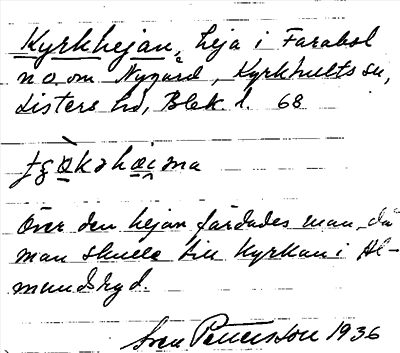 Kyrkhejan, heja i Farabol
n o om Nygård, Kyrkhults sn,
Listers hd, Blek l. 68
Över den hejan färdades man, då
man skulle till Kyrkan i Al-
mundsryd.
Sven Pettersson 1936